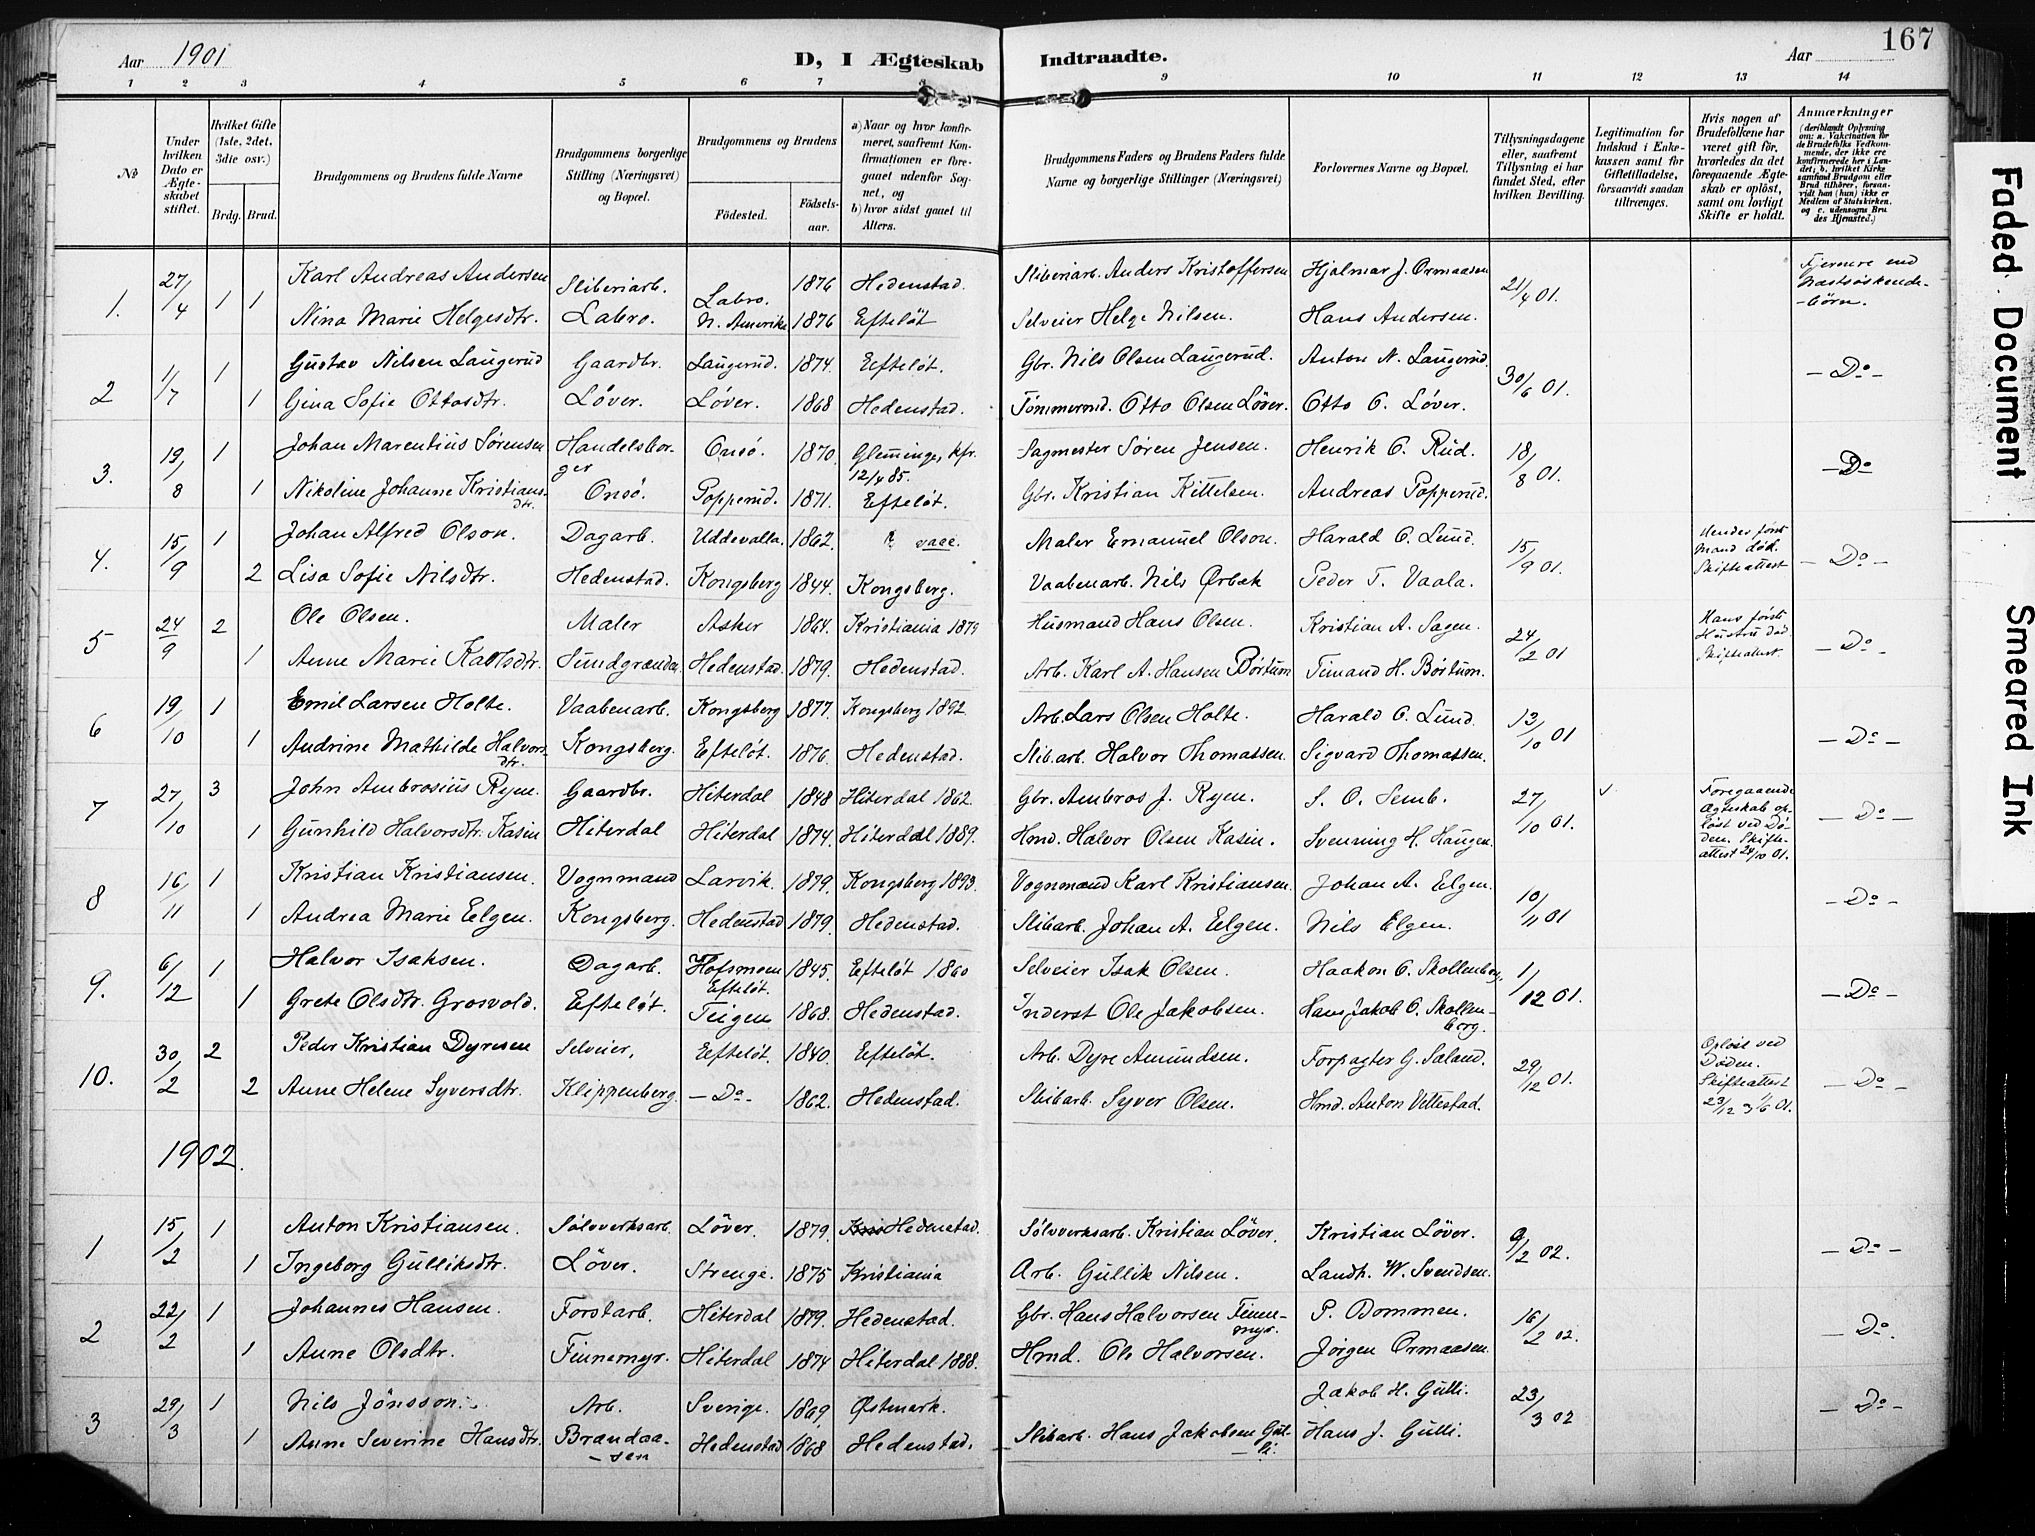 Aar 1901
D, I Ægteskab Indtraadte.
Aar
167
1 2 3 4 5 6 7 8 9 10 11 12 13 14
No
Under hvilken Dato er Ægteskabet stiftet.
Hvilket Gifte (1ste, 2det, 3die osv.)
Brdg. Brud.
Brudgommens og Brudens fulde Navne
Brudgommens borgerlige Stilling (Næringsvei) og Bopæl.
Brudgommens og Brudens
Fødested.
Fødselsaar.
a) Naar og hvor konfirmeret, saafremt Konfirmationen er foregaaet udenfor Sognet, og
b) hvor sidst gaaet til Alters.
Brudgommens Faders og Brudens Faders fulde Navne og borgerlige Stillinger (Næringsvei)
Forlovernes Navne og Bopæl.
Tillysningsdagene eller, saafremt Tillysning ei har fundet Sted, efter hvilken Bevilling.
Legitimation for Indskud i Enkekassen samt for Giftetilladelse, forsaavidt saadan tiltrænges.
Hvis nogen af Brudefolkene har været gift før, hvorledes da det foregaaende Ægteskab er opløst, samt om lovligt Skifte er holdt.
Anmærkninger
(deriblandt Oplysning om: a. Vakcination for de Brudefolks Vedkommende, der ikke ere konfirmerede her i Landet; b. hvilket Kirkesamfund Brudgom eller Brud tilhører, forsaavidt han (hun) ikke er Medlem af Statskirken. og c. udensogns Brudes Hjemsted.)
1. 27/4 1 1 Karl Andreas Andersen Sliberiarb. Labro. 1876 Hedenstad. Sliberiarb. Anders Kristoffersen Hjalmar J. Ormaasen 21/4 01. Fjernere end Næstsøskende-børn.
Nina Marie Helgesdtr. Labro. N. Amerika 1876 Efteløt Selveier Helge Nilsen. Hans Andersen.
2 1/7 1 Gustav Nilsen Laugerud Gaardbr. Laugerud. 1874. Efteløt. Gbr. Nils Olsen Laugerud. Anton N. Laugerud. 30/6 01. - Do -
1 Gina Sofie Ottosdtr. Løver. Løver. 1868 Hedenstad. Tømmermd. Otto Olsen Løver. Otto O. Løver.
3. 19/8 1 Johan Marentius Sørensen Handelsborger Onsø. 1870. Glemminge, kfr. 12/4 85. Sagmester Søren Jensen. Henrik O. Rud. 18/8 01. - Do
1 Nikoline Johanne Kristiansdtr. Onsø. Popperud. 1871. Efteløt. Gbr. Kristian Kittelsen. Andreas Popperud.
4. 15/9 1 Johan Alfred Olson. Dagarb. Uddevalla. 1862. Maler Emanuel Olson. Harald O. Lund. 15/9 01. Hendes først Mand død. Skifteattest - Do -
2 Lisa Sofie Nilsdtr. Hedenstad. Kongsberg 1844. Kongsberg. Vaabenarb. Nils Ørbæk Peder T. Vaala.
5 24/9 2 Ole Olsen. Maler Asker 1864. Kristiania 1879 Husmand Hans Olsen. Kristian A. Sagen. 24/2 01 Hans først Hustru død Skifteattest. - Do -
1 Anne Marie Karlsdtr. Sundgrænden Hedenstad. 1879. Hedenstad. Arb. Karl A. Hansen Børtum H. Børtum.
6 19/10 1 Emil Larsen Holte. Vaabenarb. Kongsberg 1877. Kongsberg 1892. Arb. Lars Olsen Holte. Harald O. Lund. 13/10 01 - Do -
1 Andrine Mathilde Halvorsdtr. Kongsberg. Efteløt. 1876. Hedenstad. Slib.arb. Halvor Thomassen. Sigvard Thomassen.
7 27/10 3 John Ambrosius Ryen. Gaardbr. Hiterdal 1848 Hiterdal 1862. Gbr. Ambros J. Ryen. S. O. Semb. 27/10 01. Foregaaende Ægteskab opløst ved Døden. Skifteattest 24/10 01. - Do -
1 Gunhild Halvorsdtr. Kasin Hiterdal Hiterdal 1874. Hiterdal 1889. Hmd. Halvor Olsen Kasin. Svenning H. Haugen.
8 16/11 1 Kristian Kristiansen. Vognmand Larvik. 1879. Kongsberg 1893. Vognmand Karl Kristiansen. Johan A. Elgen. 10/11 01 - Do -
1 Andrea Marie Eelgen. Kongsberg. Hedenstad 1879. Hedenstad. Slibarb. Johan A. Eelgen. Nils Elgen.
9. 6/12 1 Halvor Isaksen. Dagarb. Hofsmoen Efteløt. 1845. Efteløt 1860 Selveier Isak Olsen. Haakon O. Skollenberg. 1/12 01. - Do -
1 Grete Olsdtr. Grosvold. Efteløt. Teigen 1868. Hedenstad. Inderst Ole Jakobsen. Hans Jakob O. Skollenborg.
10. 30/2 2 Peder Kristian Dyresen Selveier, Efteløt. 1840. Efteløt. Arb. Dyre Amundsen. Forpagter G. Saland. 29/12 01. Opløst ved Døden. Skifteattest 23/12 3/6 01. - Do -
2 Anne Helene Syversdtr. Klippenberg. - Do - 1862. Hedenstad. Slibarb. Syver Olsen. Hmd. Anton Vettestad.
1902.
1 15/2 1 Anton Kristiansen. Sølvverksarb. Løver. 1879. Hedenstad. Sølvverksarb. Kristian Løver. Kristian Løver. 9/2 02. - Do -
1 Ingeborg Gulliksdtr. Løver. Strenge. 1875 Kristiania Arb. Gullik Nilsen. Landh. W. Svendsen.
2 22/2 1 Johannes Hansen. Forstarb. Hiterdal 1879. Hedenstad. Gbr. Hans Halvorsen Finnemyr. P. Dommen. 16/2 02. - Do.
1 Anne Olsdtr. Finnemyr. Hiterdal 1874 Hiterdal 1888. Hmd. Ole Halvorsen. Jørgen Ormaasen.
3 29/3 1 Nils Jönsson. Arb. Sverige. 1869. Østmark. Jakob H. Gulli. 23/3 02 - Do -
1 Anne Severine Hansdtr. Brandaasen Hedenstad 1868 Hedenstad. Slibarb. Hans Jakobsen Gulli. Hans J. Gulli.
Faded Document
Smeared Ink